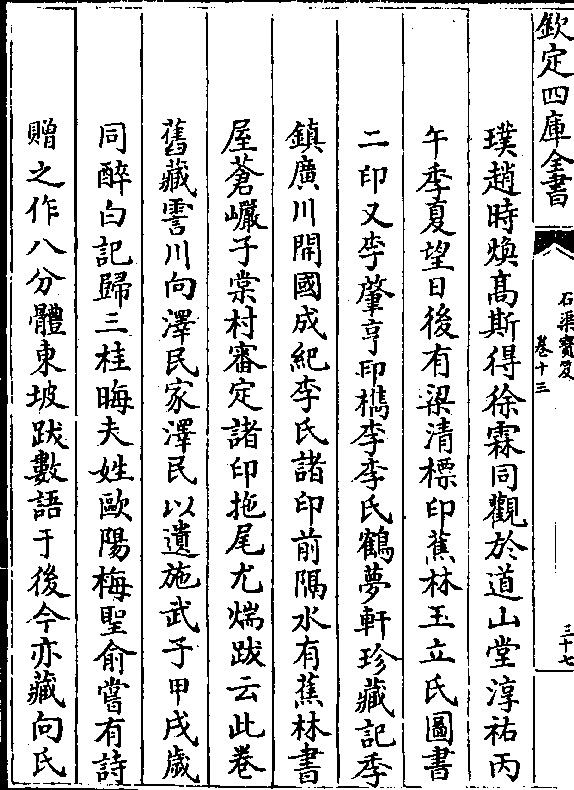 欽定四庫全書
石渠寶笈
卷十三
三十七
璞趙時煥髙斯得徐霖同觀於道山堂淳祐丙
午季夏望日後有梁清標印蕉林玉立氏圖書
二印又李肇亨印檇李李氏鶴夢軒珍藏記李
鎮廣川開國成紀李氏諸印前隔水有蕉林書
屋蒼巗子棠村審定諸印拖尾尤煓跋云此卷
舊藏霅川向澤民家澤民以遺施武子甲戌歲
同醉白記歸三桂晦夫姓歐陽梅聖俞嘗有詩
贈之作八分體東坡跋數語于後今亦藏向氏